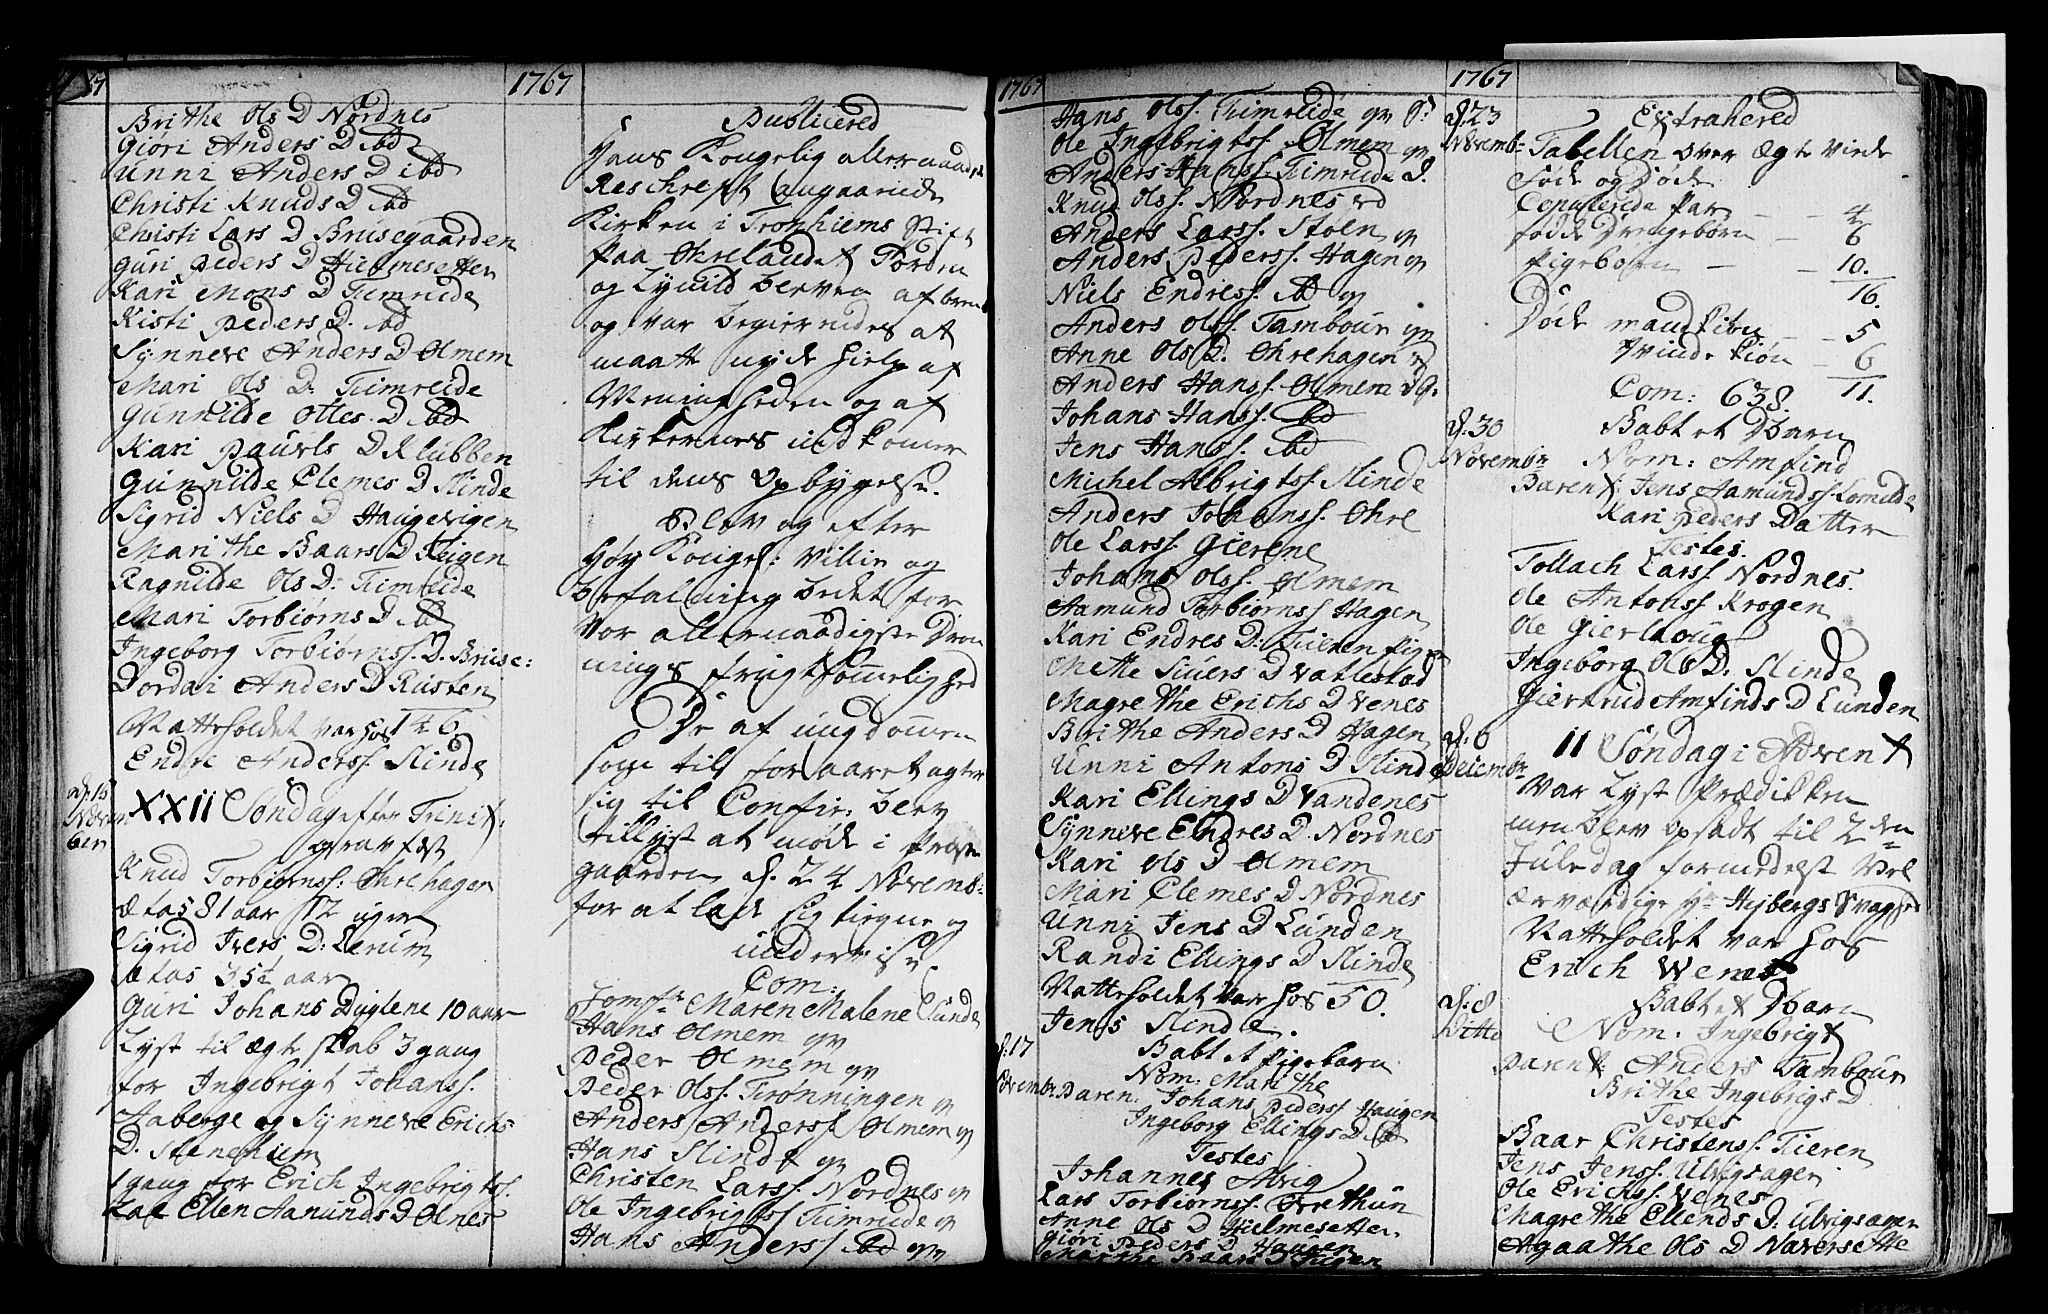 1767
Brithe Ols D Nordnes
Giøri Anders D ibd
Unni Anders D ibd
Christi Knuds D ibd
Christi Lars D Brusegaarden
Guri Peders D Hielmesetter
Kari Mons D Timreide
Kisti Peders D. ibd
Synneve Anders D Olmem
Mari Ols D: Timreide
Gunnilde Ottes D ibd
Kari Pauels D Klubben
Gunnilde Clemes D Slinde
Sigrid Niels D Haugevigen
Marithe Baars D Teigen
Ragnilde Ols D: Timreide
Mari Torbiørns D ibd
Ingeborg Torbiørnss. D. Bruse:
Dordai Anders D Rusten
Natteholdet var hos 146.
Endre Anderss. Slinde
d. 15 Novemben
XXII Søndag efter Trinit:
gravfæst
Knud Torbiørnss: Ohrehagen
ætas 81 aar 12 uger
Sigrid Ivers D: Lerum
ætas 35½ aar
Guri Johans D 10 aar
Lyst til ægteskab 3 gang
for Ingebrigt Johanss.
Aaberge og Synneve Erichs
D. Stenehiem
1 gang for Erich Ingebrigtss.
Ellen Aamunds D Olnes
1767
Publicered
Hans Kongelig allernaadi
Rescript angaaende
Kirken i Tronhiems Stift
paa Ohrelandet
og Lynild bleven afbrend
og var begierendes at
maatte nyde hielp af
Menigheden og af
Kirkernes indkomer
til dens opbygelse.
Blev og efter
Høy Kongel: Villie og
befalning bedet for
Vor allernaadigste Dron
nings frugtsommelighed
De af ungdommen
som til foraaret agter
sig til Confir: blev
tillyst at møde i Præste
gaarden d. 24 Novemb:
for at lade sig tiegne og
undervise.
Com:
Jomfr: Maren Malene Sunde
Hans Olmem qv
Peder Olmem qv
Peder Olss. Trønningen qv
Anders Anderss Olmem qv
Hans Slinde qv
Christen Larss. Nordnes qv
Ole Ingebrigtss Timreide qv
Hans Anderss ibd qv
1767
Hans Olss. Timreide qv
Ole Ingebrigtss. Olmem qv
Anders Hanss. Timreide
Knud Olss. Nordnes
Anders Larss. Stoen qv
Anders Pederss. Hagen qv
Niels Endress. ibd qv
Anders Olss. Tambour qv
Anne Ols D. Ohrehagen
Anders Hanss. Olmem
Johans Hanss. ibd
Jens Hanss. ibd
Michel Albrigtss. Slinde
Anders Johanss. Ohre
Ole Larss. Gierene
Johans Olss. Olmem
Aamund Torbiørnss Hagen
Kari Endres D. Tieren
Mette Siuers D Vattestad
Magrethe Erichs D Venes
Brithe Anders D Hagen
Unni Antons D Slinde
Kari Ellings D Vandenes
Synneve Endres D. Nordnes
Kari Ols D Olmem
Mari Clemes D Nordnes
Unni Jens D Lunden
Randi Ellings D Slinde
Natteholdet var hos 50.
Jens Slinde.
d. 17 Novembr
Babtet Pigebarn
Nom: Marithe
Paren: Johans Pederss Haugen
Ingeborg Ellings D ibd
Testes
Johannes Alvig
Lars Torbiørnss. Ovrethun
Anne Ols D Hielmesetter
Giøri Peders D Haugen
Marthe Baars D Teigen
1767
d. 23 Novemb:
Extrahered
Tabellen over Ægte Viede
Føde og Døde
Copulerede Par — 4
fødde Drengebørn — 6
Pigebørn — 10.
16.
Døde mandkiøn — 5
Qvindekiøn — 6
11.
Com: 638
d. 30 Novembr
Babtet Barn
Nom: Amfind
Parent: Jens Aamundss. Lomelde
Kari Peders Datter
Testes.
Tollach Larss Nordnes.
Ole Antonss Krogen
Ole Gierhoug
Ingeborg Ols D. Slinde
Giertrud Amfinds D Lunden
d. 6 Decembr
II Søndag i Advent
Var Lyst Prædikken
men blev opsadt til 2den
Juledag formedelst Vel
ærværdige Hr Heybergs Svaghed
Natteholdet var hos
Erich Wenes
d. 8 Ditto
Babtet Barn
Nom: Ingebrigt
Parent: Anders Tambour
Brithe Ingebrigs D
Testes
Baar Christenss. Tieren
Jens Jenss. Ulvigsager
Ole Erichss. Venes
Magrethe Ellends D. Ulvigsager
Agaathe Ols D Navarsette